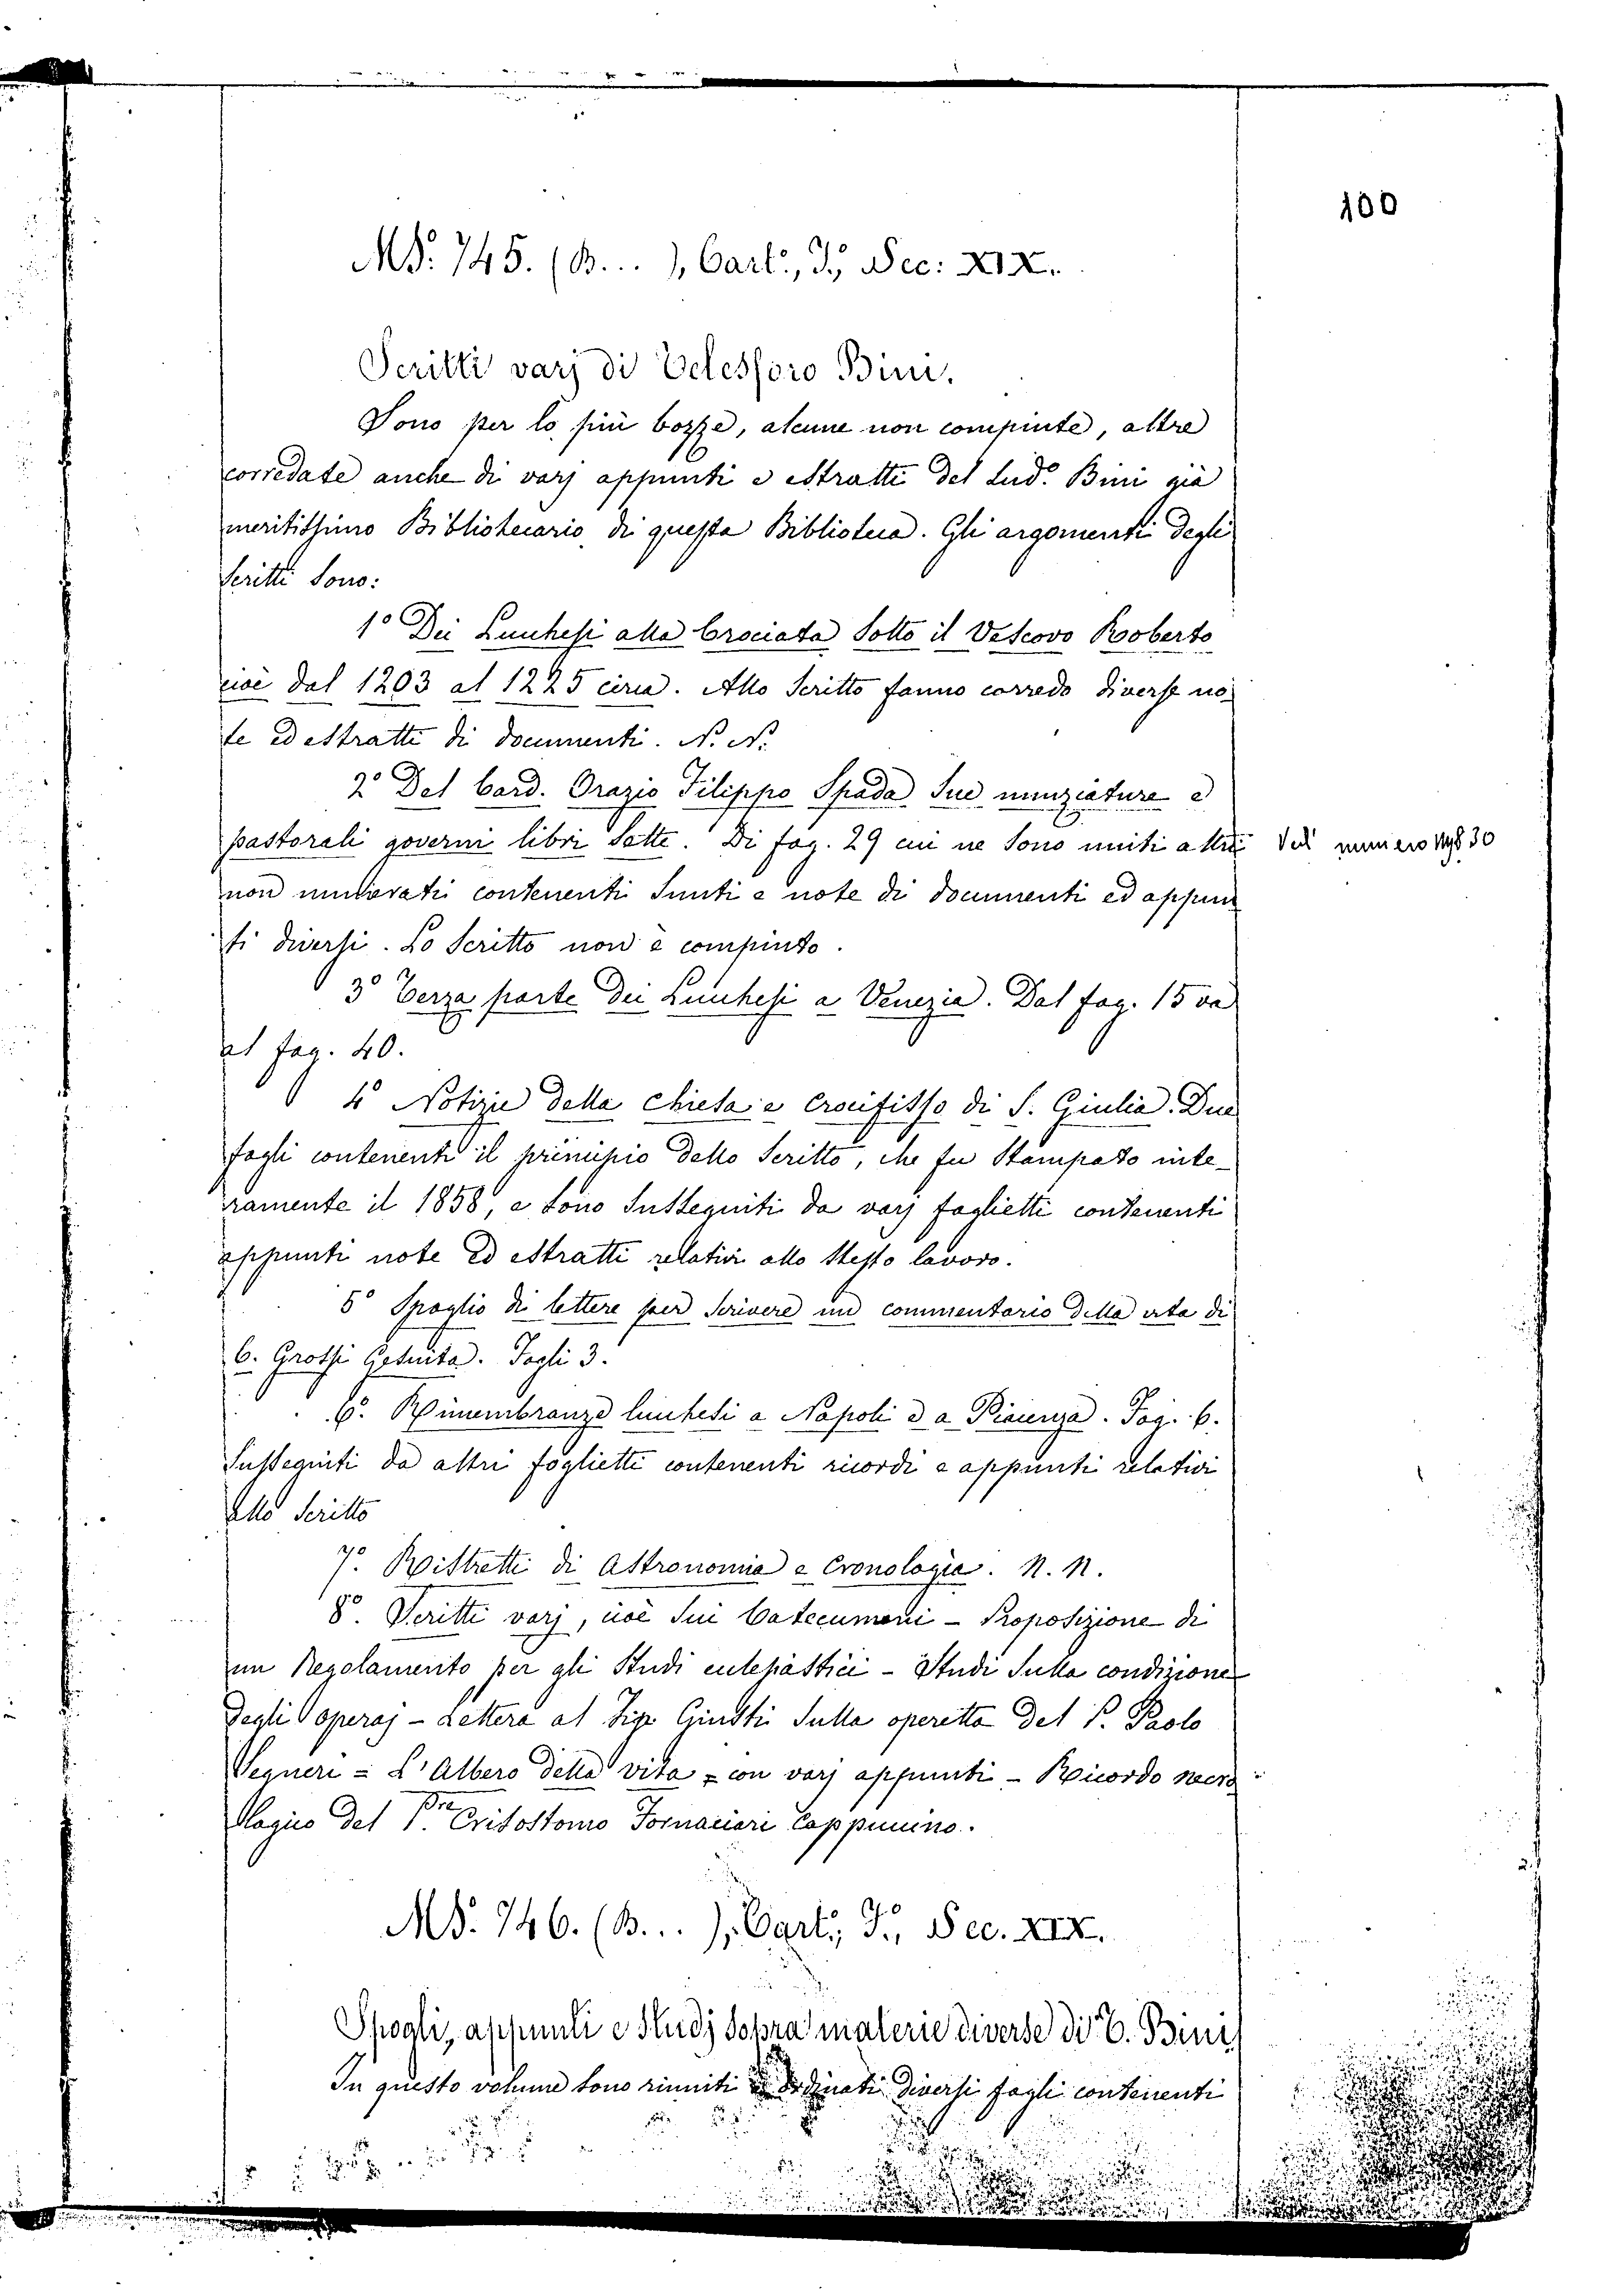 100
MS. 745. (B... ), Cart., F., Sec: XIX.
Scritti varj di Telesforo Bini.
Sono per lo più bozze, alcune non compiute, altre
corredate anche di varj appunti e estratti del Lud.º Bini già
meritissimo Bibliotecario di questa Biblioteca. Gli argomenti degli
scritti sono:
1º Dei Lucchesi alla Crociata sotto il Vescovo Roberto
cioè dal 1203 al 1225 circa. Allo scritto fanno corredo diverse no-
te ed estratti di documenti. N. N.
2º Del Card. Orazio Filippo Spada sue nunziature e
pastorali governi libri sette. Di fog. 29 cui ne sono uniti altri numero 30
non numerati contenenti sunti e note di documenti ed appun
ti diversi. Lo scritto non è compiuto.
3º Terza parte dei Lucchesi a Venezia. Dal fog. 15 va
al fog. 40.
4º Notizie della chiesa e crocifisso di S. Giulia. Due
fogli contenenti il principio dello scritto, che fu stampato inte-
ramente il 1858, e sono susseguiti da varj foglietti contenenti
appunti note ed estratti relativi allo stesso lavoro.
5º Spoglio di lettere per scrivere un commentario della vita di
C. Grossi Gesuita. Fogli 3.
6º. Rimembranze lucchesi a Napoli e a Piacenza. Fog. 6.
Susseguiti da altri foglietti contenenti ricordi e appunti relativi
allo scritto
7º. Ristretti di Astronomia e Cronologia. N. N.
8º. Scritti varj, cioè sui Catecumeni - Proposizione di
un Regolamento per gli Studi ecclesiastici - Studi sulla condizione
degli operaj - Lettera al Sig. Giusti sulla operetta del P. Paolo
Segneri = L'Albero della vita = con varj appunti - Ricordo necro
logico del P.re Crisostomo Fornaciari Cappuccino.
MS. 746. (B... ), Cart., F., Sec. XIX.
Spogli, appunti e studj sopra materie diverse di T. Bini
In questo volume sono riuniti ordinati diversi fogli contenenti